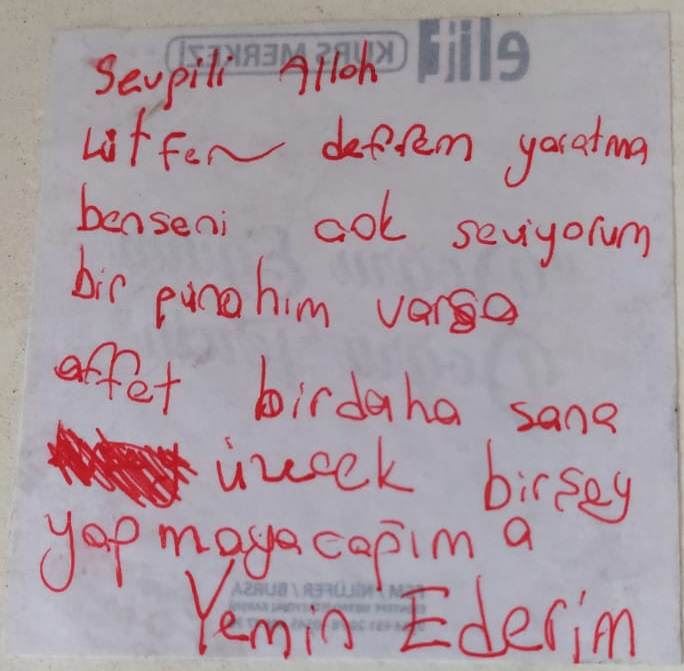 elit
KURS MERKEZİ
Sevpili Alloh
Lütfen deprem yaratma
benseni çok seviyorum
bir pünahim varsa
affet birdaha sana
üzecek birşey
yapmayacapım a
Yemin Ederim